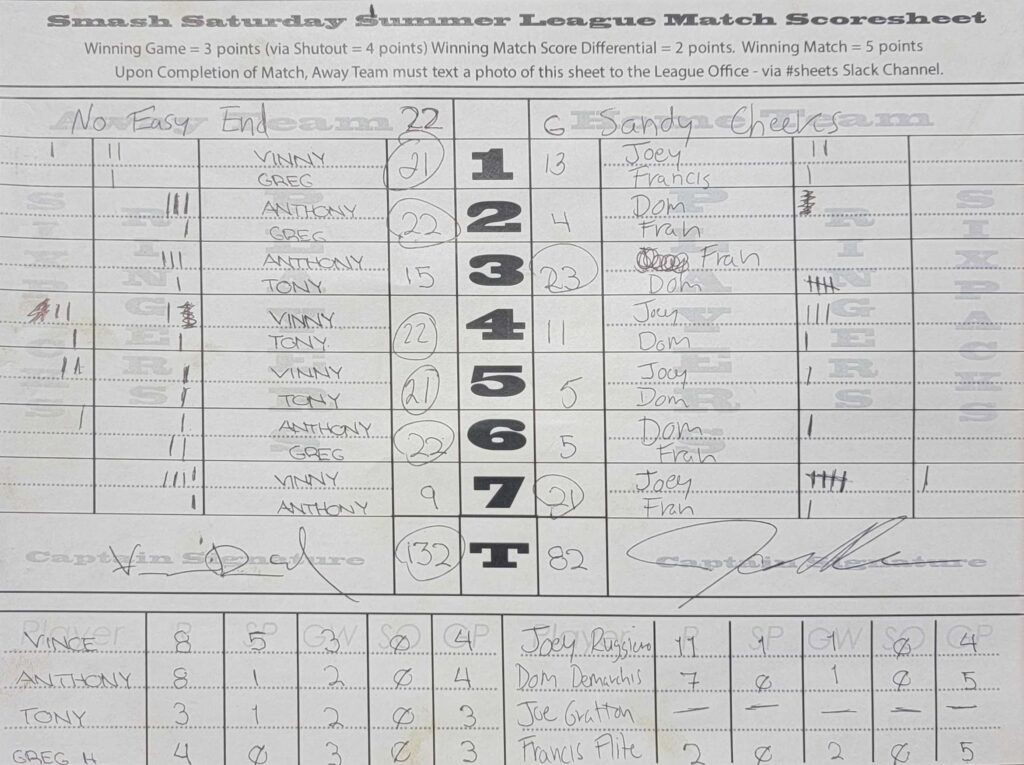 Smash Saturday Summer League Match Scoresheet
Winning Game = 3 points (via Shutout = 4 points) Winning Match Score Differential = 2 points. Winning Match = 5 points
Upon Completion of Match, Away Team must text a photo of this sheet to the League Office - via #sheets Slack Channel.
Away Team Home Team
No Easy End 22 6 Sandy Cheeks
VINNY 21 1 13 Joey
GREG Francis
ANTHONY 22 2 4 Dom
GREG Fran
ANTHONY 15 3 23 Fran
TONY Dom
VINNY 22 4 11 Joey
TONY Dom
VINNY 21 5 5 Joey
TONY Dom
ANTHONY 22 6 5 Dom
GREG Fran
VINNY 9 7 21 Joey
ANTHONY Fran
SIXPACKS RINGERS PLAYERS PLAYERS RINGERS SIXPACKS
Captain Signature 132 T 82 Captain Signature
Player R SP GW SO GP Player R SP GW SO GP
VINCE 8 5 3 Ø 4 Joey Ruggiero 11 1 1 Ø 4
ANTHONY 8 1 2 Ø 4 Dom Demarchis 7 Ø 1 Ø 5
TONY 3 1 2 Ø 3 Joe Gratton — — — — —
GREG H 4 Ø 3 Ø 3 Francis Flite 2 Ø 2 Ø 5